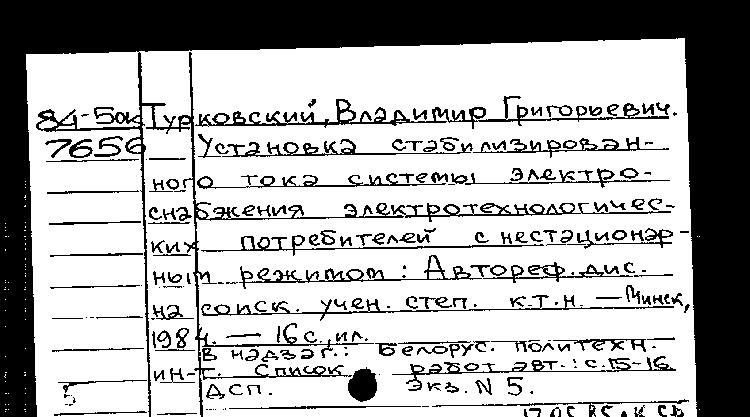 84-5ок Турковский, Владимир Григорьевич.
7656 Установка стабилизирован-
ного тока системы электро-
снабжения электротехнологичес-
ких потребителей с нестационар-
ным режимом: Автореф. дис.
на соиск. учен. степ. к.т.н. — Минск,
1984. — 16 с., ил.
В надзаг.: Белорус. политехн.
ин-т. Список работ авт.: с. 15-16
5 ДСП. Экз. N 5.